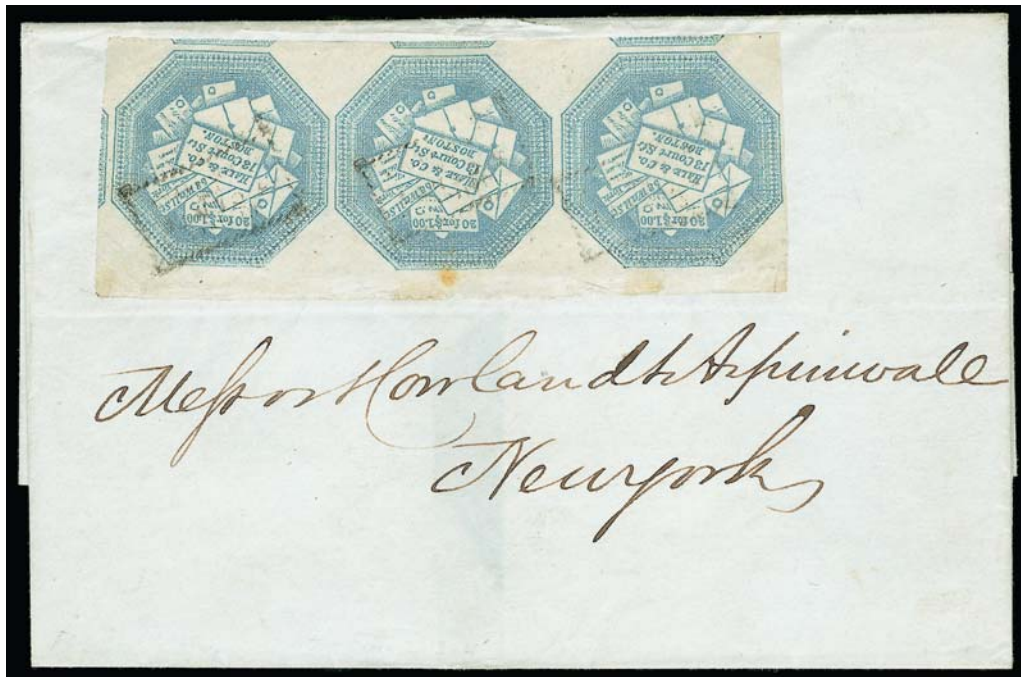 HALE & CO.
13 Court Str.
BOSTON.
20 for $1.00
HALE & CO.
13 Court Str.
BOSTON.
20 for $1.00
HALE & CO.
13 Court Str.
BOSTON.
20 for $1.00
Messrs Howland & Aspinwall
New york